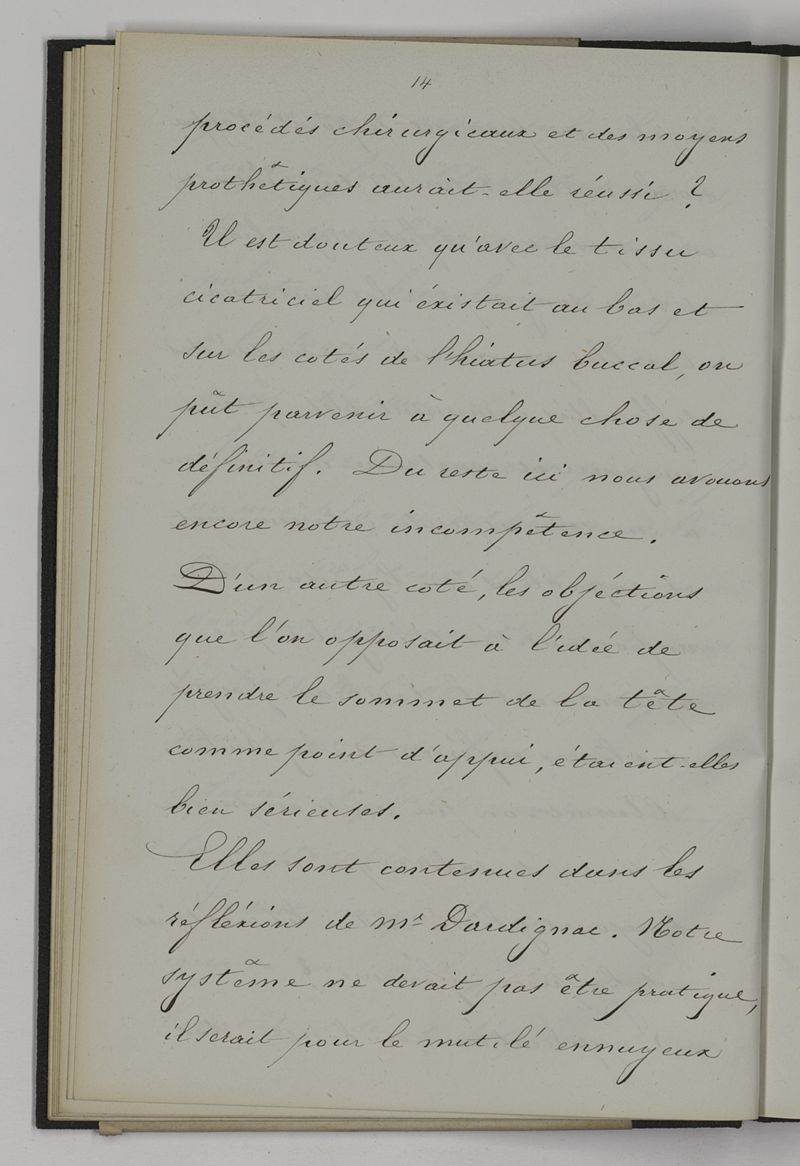 14
procédés chirurgicaux et des moyens
prothêtiques aurait-elle réussi ?
Il est douteux qu'avec le tissu
cicatriciel qui éxistait au bas et
sur les cotés de l'hiatus buccal, on
pût parvenir à quelque chose de
définitif. Du reste ici nous avouons
encore notre incompêtence.
D'un autre coté, les objéctions
que l'on opposait à l'idée de
prendre le sommet de la tête
comme point d'appui, étaient-elles
bien sérieuses.
Elles sont contenues dans les
réfléxions de Mr Dardignac. Notre
systême ne devait pas être pratique,
il serait pour le mutilé ennuyeux